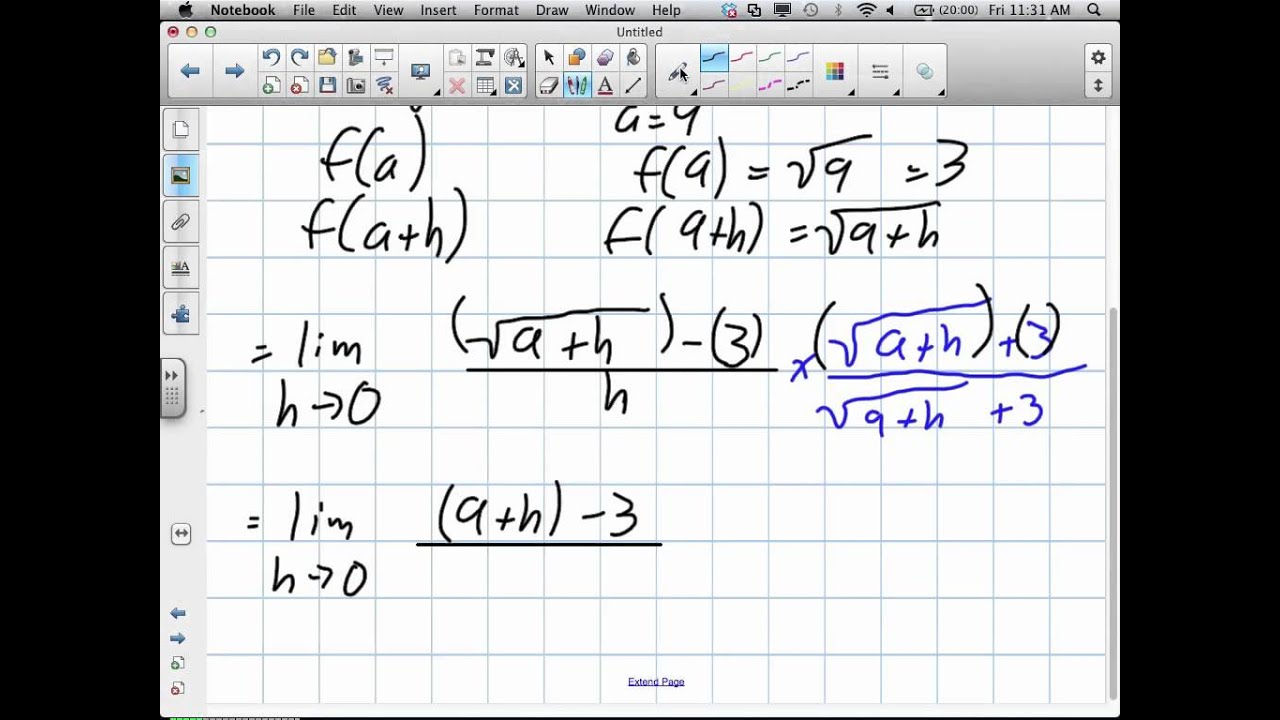 Notebook File Edit View Insert Format Draw Window Help (20:00) Fri 11:31 AM
Untitled
f(a)
a=9
f(9) = √9 = 3
f(a+h)
f(9+h) = √9+h
= lim h→0
(√9+h) - (3)
h
x (√9+h) + (3)
√9+h + 3
= lim h→0
(9+h) - 3
Extend Page